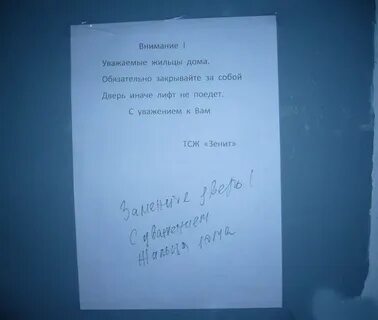 Внимание !
Уважаемые жильцы дома.
Обязательно закрывайте за собой
Дверь иначе лифт не поедет.
С уважением к Вам
ТСЖ «Зенит»
Замените дверь!
С уважением
Жильцы дома